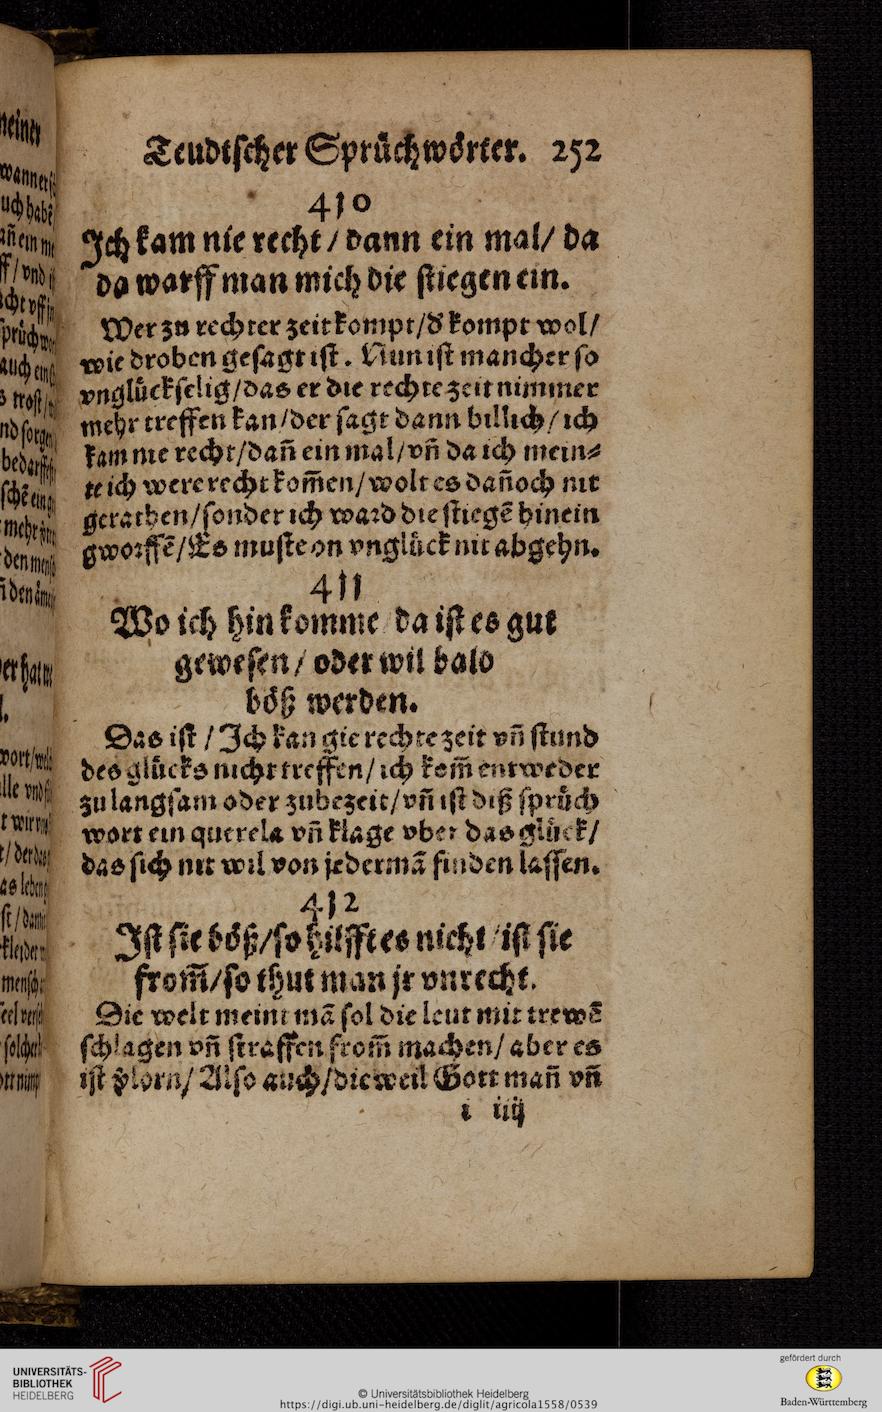 Teudtſcher Sprůchwoͤrter. 252
410
Ich kam nie recht / dann ein mal/ da
da warff man mich die ſtiegen ein.
Wer zu rechter zeit kompt/đ kompt wol/
wie droben geſagt iſt. Nun iſt mancher ſo
vngluͤckſelig/das er die rechte zeit nimmer
mehr treffen kan/der ſagt dann billich/ ich
kam nie recht/dañ ein mal/vñ da ich mein⸗
te ich were recht kom̃en/wolt es dañoch nit
gerathen/ſonder ich ward die ſtiegẽ hinein
gworffẽ/Es muſte on vngluͤck nit abgehn.
411
Wo ich hin komme da iſt es gut
geweſen/ oder wil bald
boͤß werden.
Das iſt / Ich kan gie rechte zeit vñ ſtund
des gluͤcks nicht treffen/ ich kom̃ entweder
zu langſam oder zubezeit/vñ iſt diß ſpruͤch
wort ein querela vñ klage vber das gluͤck/
das ſich nit wil von jedermã finden laſſen.
412
Iſt ſie boͤß/ſo hilfft es nicht / iſt ſie
from̃/ſo thut man jr vnrecht.
Die welt meint mã ſol die leut mit trewẽ
ſchlagen vñ ſtraffen from̃ machen/ aber es
iſt ꝟlorn/ Alſo auch/dieweil Gott mañ vñ
i iiij
UNIVERSITÄTS-
BIBLIOTHEK
HEIDELBERG
© Universitätsbibliothek Heidelberg
https://digi.ub.uni-heidelberg.de/diglit/agricola1558/0539
gefördert durch
Baden-Württemberg